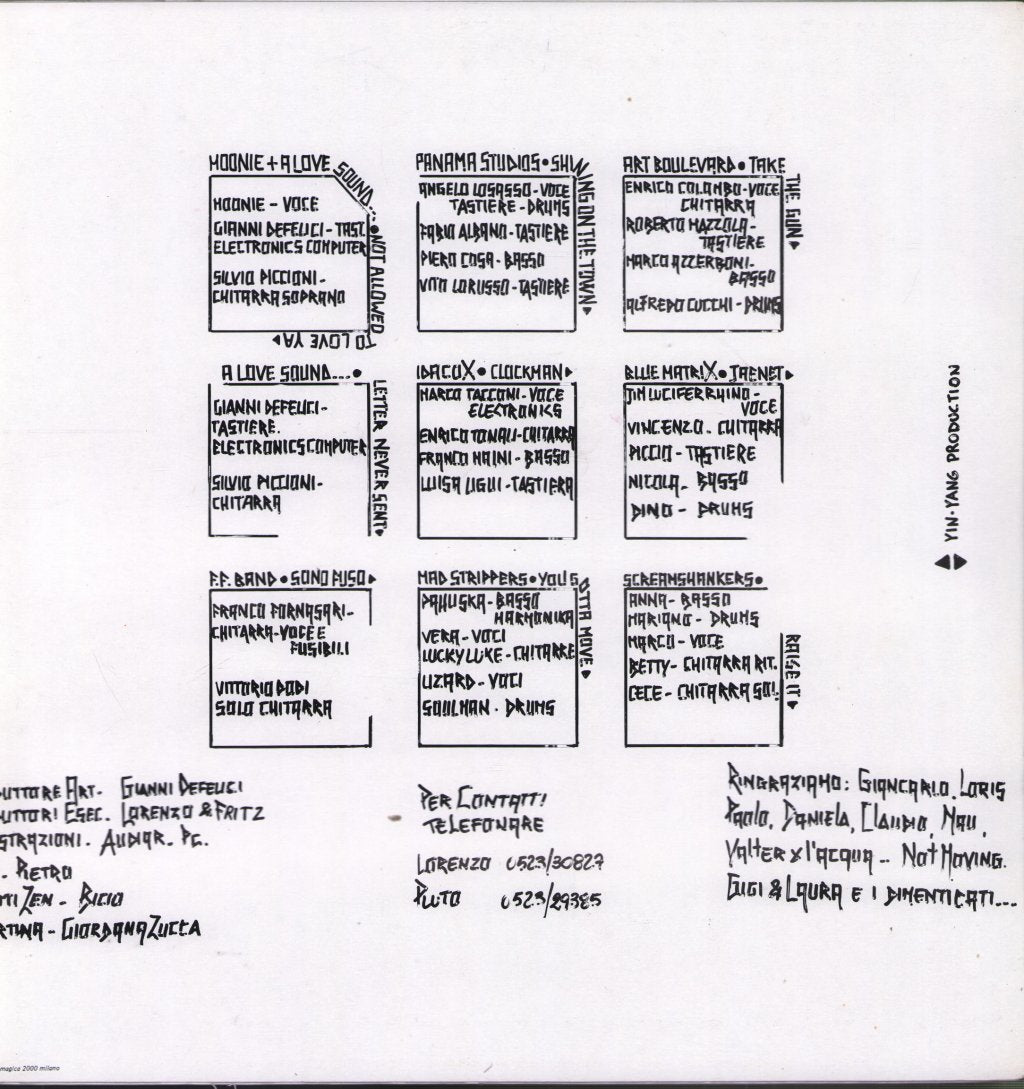 HOONIE + A LOVE SOUND... • NOT ALLOWED TO LOVE YA
HOONIE - VOCE
GIANNI DEFELICI - TAST.
ELECTRONICS COMPUTER
SILVIO PICCIONI -
CHITARRA SOPRANO
PANAMA STUDIOS • SHINING ON THE TOWN
ANGELO LOSASSO - VOCE
TASTIERE - DRUMS
FABIO ALBANO - TASTIERE
PIERO COSA - BASSO
VITO LORUSSO - TASTIERE
ART BOULEVARD • TAKE THE GUN
ENRICO COLOMBO - VOCE
CHITARRA
ROBERTO MAZZOLA -
TASTIERE
MARCO AZZERBONI -
BASSO
ALFREDO CUCCHI - DRUMS
A LOVE SOUND.... • LETTER NEVER SENT
GIANNI DEFELICI -
TASTIERE.
ELECTRONICS COMPUTER
SILVIO PICCIONI -
CHITARRA
IDACOX • CLOCKMAN
MARCO TACCONI - VOCE
ELECTRONICS
ENRICO TONALI - CHITARRA
FRANCO MAINI - BASSO
LUISA LIGUI - TASTIERA
BLUE MATRIX • JAENET
JIM LUCIFER RHINO -
VOCE
VINCENZO - CHITARRA
PICCIO - TASTIERE
NICOLA - BASSO
DINO - DRUMS
YIN-YANG PRODUCTION
F.F. BAND • SONO FUSO
FRANCO FORNASARI -
CHITARRA - VOCE E
FUSIBILI
VITTORIO DODI
SOLO CHITARRA
MAD STRIPPERS • YOU GOTTA MOVE
PAHUSKA - BASSO
HARMONIKA
VERA - VOCI
LUCKY LUKE - CHITARRE
LIZARD - VOCI
SOULMAN - DRUMS
SCREAMSHANKERS • RAISE IT
ANNA - BASSO
MARIANO - DRUMS
MARCO - VOCE
BETTY - CHITARRA RIT.
CECE - CHITARRA SOL.
UTTORE ART - GIANNI DEFELICI
UTTORI ESEC. LORENZO & FRITZ
STRAZIONI - AUDIAR. PC.
. PIETRO
TI ZEN - BICIO
RTINA - GIORDANA ZUCCA
PER CONTATTI
TELEFONARE
LORENZO 0523/30827
PLUTO 0523/29385
RINGRAZIAMO: GIANCARLO, LORIS
PAOLO, DANIELA, CLAUDIO, MAU,
VALTER X L'ACQUA - NOT MOVING.
GIGI & LAURA E I DIMENTICATI...
magica 2000 milano